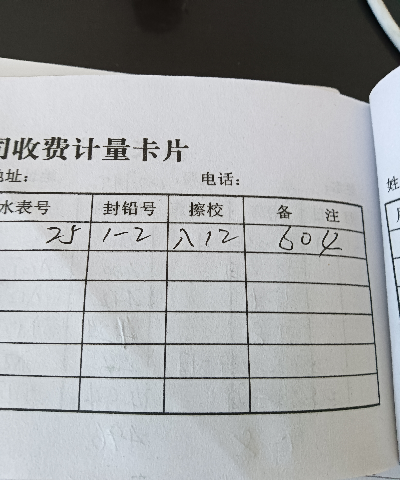 司收费计量卡片
地址: 电话:
水表号 封铅号 擦校 备 注
25 1-2 入12 604
姓